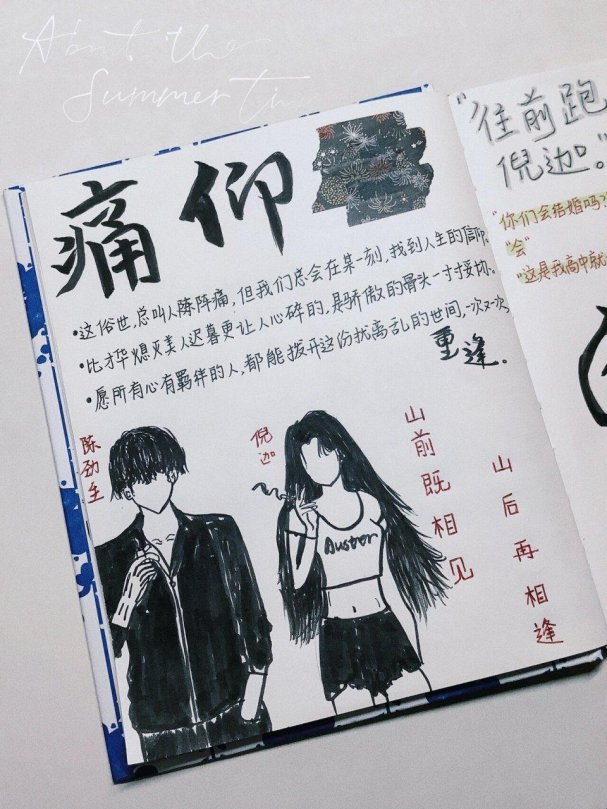 About the
Summer Ti
痛仰
•这俗世,总叫人陈阵痛,但我们总会在某一刻,找到人生的信仰。
•比才华熄灭美人迟暮更让人心碎的,是骄傲的骨头一寸寸妥协。
•愿所有心有羁绊的人,都能拨开这份扰离乱的世间,一次又一次
重逢。
陈劲生
倪迦
Auster
山前既相见
山后再相逢
"往前跑
倪迦"。
"你们会结婚吗?
"会"
"这是我高中就